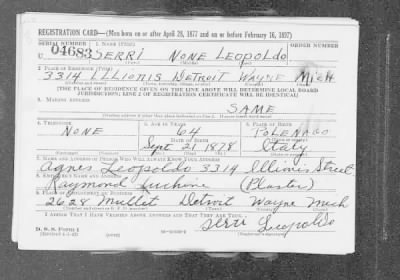 REGISTRATION CARD—(Men born on or after April 28, 1877 and on or before February 16, 1897)
SERIAL NUMBER 1. NAME (Print)
U 04683 SERRI NONE LEOPOLDO
2. PLACE OF RESIDENCE (Print)
3314 ILLIONIS DETROIT WAYNE MICH
[THE PLACE OF RESIDENCE GIVEN ON THE LINE ABOVE WILL DETERMINE LOCAL BOARD
JURISDICTION; LINE 2 OF REGISTRATION CERTIFICATE WILL BE IDENTICAL]
3. MAILING ADDRESS
SAME
4. TELEPHONE 5. AGE IN YEARS 6. PLACE OF BIRTH
NONE 64 POLENAGO
DATE OF BIRTH
Sept 21 1878 Italy
7. NAME AND ADDRESS OF PERSON WHO WILL ALWAYS KNOW YOUR ADDRESS
Agnes Leopoldo 3314 Illinois Street
8. EMPLOYER'S NAME AND ADDRESS
Raymond (Plaster)
9. PLACE OF EMPLOYMENT OR BUSINESS
2628 Mullet Detroit Wayne Mich
I AFFIRM THAT I HAVE VERIFIED ABOVE ANSWERS AND THAT THEY ARE TRUE.
D. S. S. Form 1
Serri Leopoldo